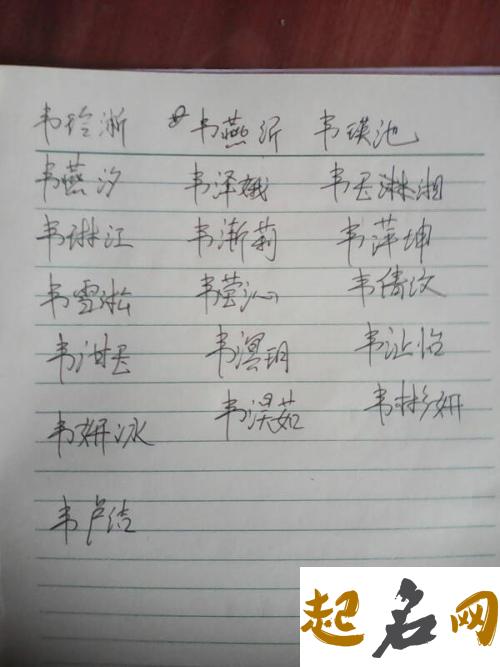 韦玲浙 韦燕沂 韦瑛池
韦燕汐 韦泽娥 韦琳湘
韦琳江 韦渐莉 韦萍坤
韦雪淞 韦莹沁 韦倩汶
韦玥 韦让怡
韦妍冰 韦淏茹 韦彬妍
韦卢洁
起名网